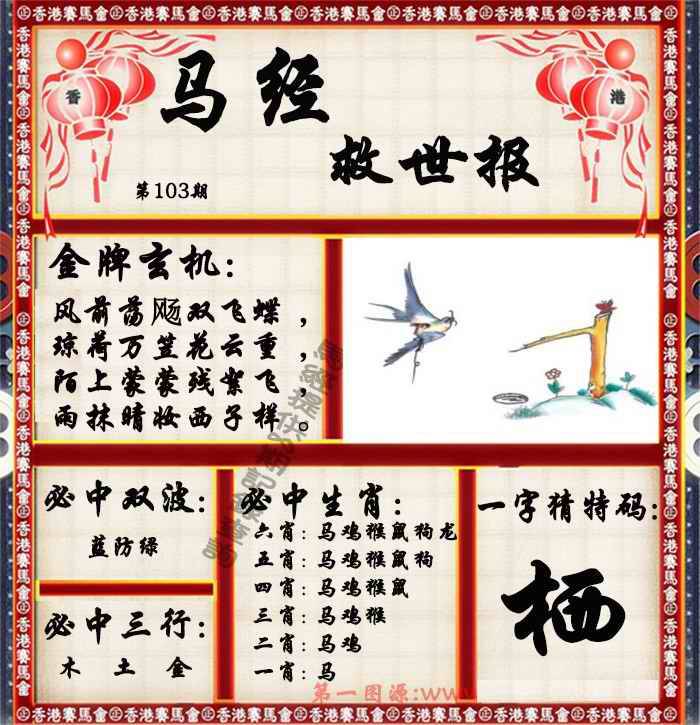 香港賽馬會
香
港
马经
救世报
第103期
金牌玄机：
风前荡飏双飞蝶，
琼荷万笠花云重，
陌上蒙蒙残絮飞，
雨抹晴妆西子样。
必中双波：
蓝防绿
必中三行：
木 土 金
必中生肖：
六肖：马鸡猴鼠狗龙
五肖：马鸡猴鼠狗
四肖：马鸡猴鼠
三肖：马鸡猴
二肖：马鸡
一肖：马
一字猜特码：
栖
第一图源:www